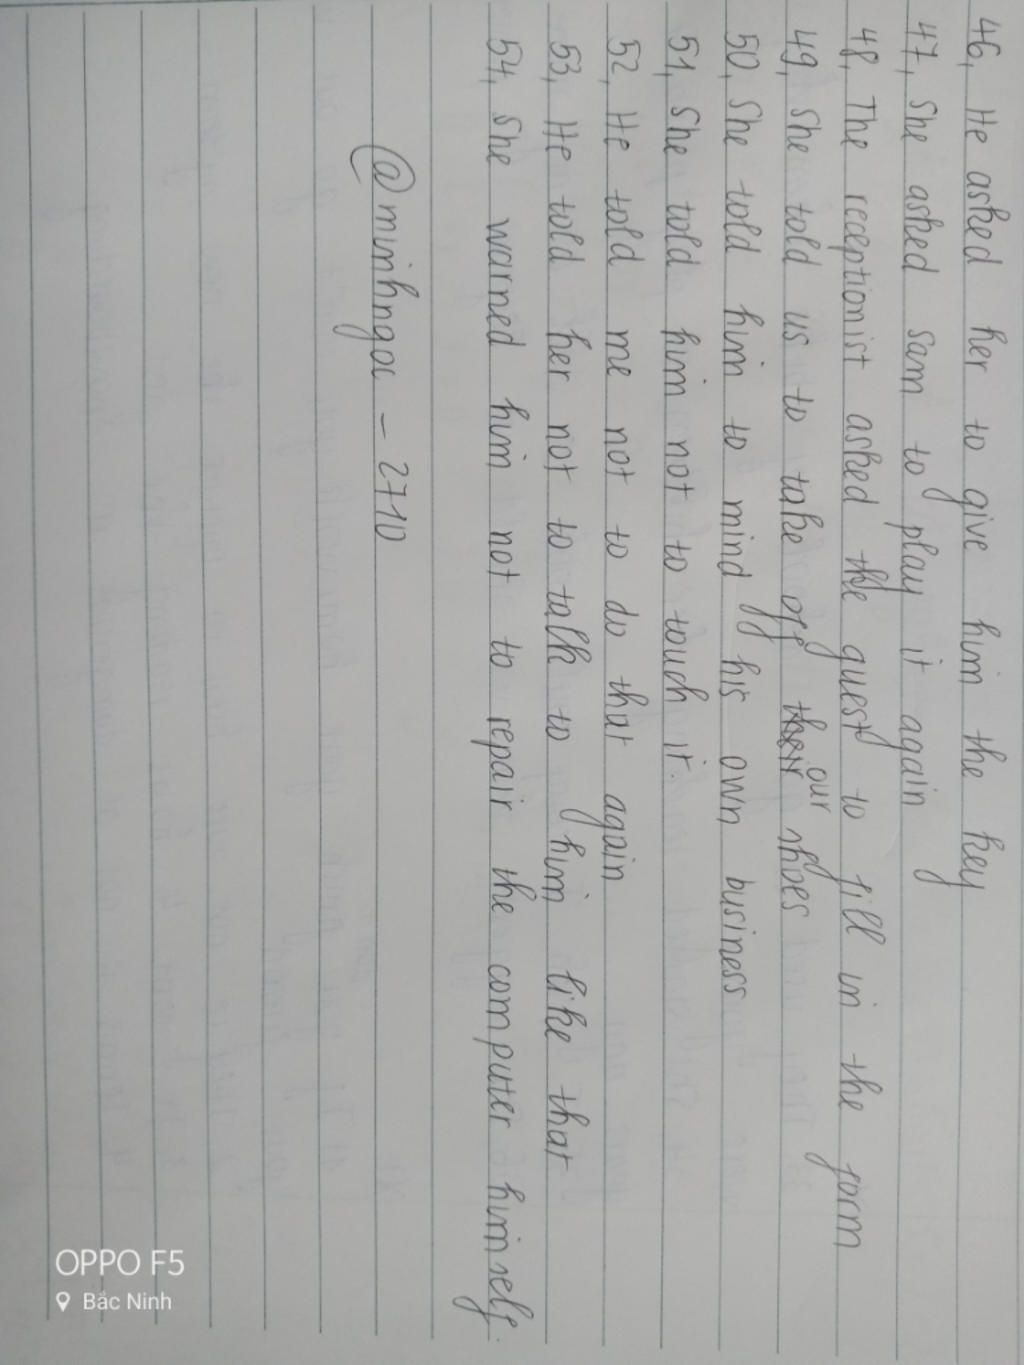 46, He asked her to give him the key
47, She asked Sam to play it again
48, The receptionist asked the guest to fill in the form
49, She told us to take off our shoes
50, She told him to mind his own business
51, She told him not to touch it.
52, He told me not to do that again
53, He told her not to talk to him like that
54, She warned him not to repair the computer himself.
@minhngoc - 2710
OPPO F5
Bắc Ninh